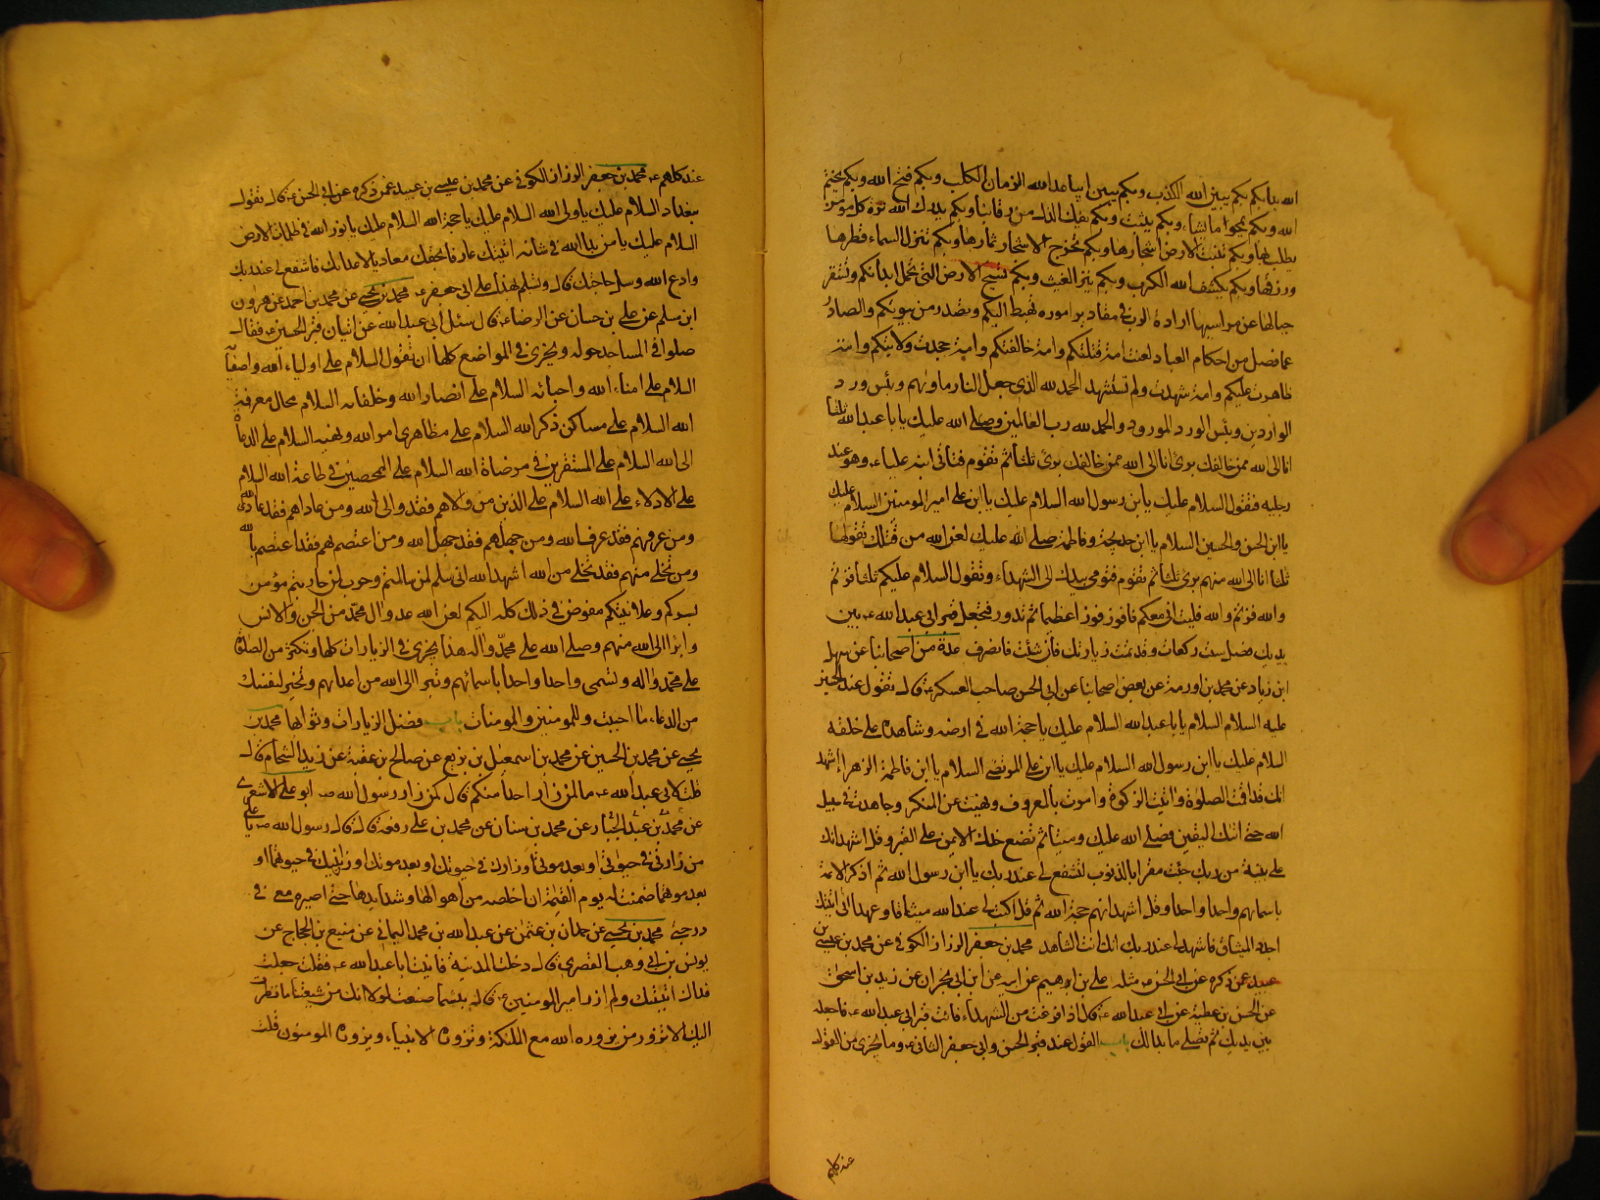 الله بابكم بكم يبين الله الكذب وبكم يبين الله الزمان الكلب وبكم فتح الله وبكم يختم
الله وبكم يمحوا ما يشاء وبكم يثبت وبكم يفك الذل من رقابنا وبكم يدرك الله ترة كل مؤمن
يطلب بها وبكم تنبت الارض اشجارها وبكم تخرج الاشجار ثمارها وبكم تنزل السماء قطرها
ورزقها وبكم يكشف الله الكرب وبكم ينزل الغيث وبكم تسيخ الارض التي تحمل ابدانكم وتستقر
جبالها عن مراسيها ارادة الرب في مقادير اموره تهبط اليكم وتصدر من بيوتكم والصادر
عما فصل من احكام العباد لعنت امة قتلتكم وامة خالفتكم وامة جحدت ولايتكم وامة
ظاهرت عليكم وامة شهدت ولم تستشهد الحمد لله الذي جعل النار ماويهم وبئس ورد
الواردين وبئس الورد المورود والحمد لله رب العالمين وصلى الله عليك يا ابا عبد الله ثلثا
انا الى الله ممن خالفك برئ انا الى الله ممن خالفك برئ ثلثا ثم تقوم فتأتي ابنه عليا ء وهو عند
رجليه فتقول السلام عليك يا ابن رسول الله السلام عليك يا ابن علي امير المومنين السلام عليك
يا ابن الحسن والحسين السلام يا ابن خديجة وفاطمة صلى الله عليك لعن الله من قتلك تقولها
ثلثا انا الى الله منهم برئ ثلثا ثم تقوم فتومي بيدك الى الشهداء وتقول السلام عليكم ثلثا فزتم
والله فزتم والله فليت اني معكم فافوز فوزا عظيما ثم تدور فتجعل قبر ابي عبد الله ء بين
يديك فصل ست ركعات وقد تمت زيارتك فان شئت فانصرف عدة من اصحابنا عن سهل
ابن زياد عن محمد بن اورمة عن بعض اصحابنا عن ابي الحسن صاحب العسكر ء قال تقول عند الحسين
عليه السلام السلام يا ابا عبد الله السلام عليك يا حجة الله في ارضه وشاهده على خلقه
السلام عليك يا ابن رسول الله السلام عليك يا ابن علي المرتضى السلام يا ابن فاطمة الزهرا اشهد
انك قد اقمت الصلوة واتيت الزكوة وامرت بالمعروف ونهيت عن المنكر وجاهدت في سبيل
الله حتى اتيك اليقين فصلى الله عليك وميتا ثم تضع خدك الايمن على القبر وقل اشهد انك
على بينة من ربك جئت مقرا بالذنوب لتشفع لي عند ربك يا ابن رسول الله ثم اذكر الائمة
باسمائهم واحدا واحدا وقل اشهد انهم حجة الله ثم قل اكتب لي عند الله ميثاقا وعهدا اني اتيتك
اجدد الميثاق فاشهد لي عند ربك انك انت الشاهد محمد بن جعفر الرزاز الكوفي عن محمد بن عيسى بن
عبيد عمن ذكره عن ابي الحسن ء مثله علي بن ابرهيم عن ابيه عن ابن ابي نجران عن زيد بن اسحق
عن الحسن بن عطية عن ابي عبد الله ء قال اذا فرغت من الشهداء فائت قبر ابي عبد الله ء فاجعله
بين يديك ثم تصلي ما بدا لك باب القول عند قبر الحسن وابي جعفر الثاني ء وما يجزي من القول
عند كلهم
عند كلهم ء محمد بن جعفر الرزاز الكوفي عن محمد بن عيسى بن عبيد عمن ذكره عن ابي الحسن ء قال تقول
ببغداد السلام عليك يا ولي الله السلام عليك يا حجة الله السلام عليك يا نور الله في ظلمات الارض
السلام عليك يا من بدا الله في شانه اتيتك عارفا بحقك معاديا لاعدائك فاشفع لي عند ربك
وادع الله وسل حاجتك قال وتسلم بهذا على ابي جعفر ء محمد بن يحيى عن محمد بن احمد عن هرون
ابن مسلم عن علي بن حسان عن الرضا ء قال سئل ابي عبد الله عن اتيان قبر الحسين ء فقال
صلوا في المساجد حوله ويجزي في المواضع كلها ان تقول السلام على اولياء الله واصفيائه
السلام على امناء الله واحبائه السلام على انصار الله وخلفائه السلام محال معرفة
الله السلام على مساكن ذكر الله السلام على مظاهري امر الله ونهيه السلام على الدعاة
الى الله السلام على المستقرين في مرضاة الله السلام على الممحصين في طاعة الله السلام
على الادلاء على الله السلام على الذين من والاهم فقد والى الله ومن عاداهم فقد عادى الله
ومن عرفهم فقد عرف الله ومن جهلهم فقد جهل الله ومن اعتصم بهم فقد اعتصم بالله
ومن تخلى منهم فقد تخلى من الله اشهد الله اني سلم لمن سالمتم وحرب لمن حاربتم مؤمن
بسركم وعلانيتكم مفوض في ذلك كله اليكم لعن الله عدو ال محمد من الجن والانس
وابرا الى الله منهم وصلى الله على محمد واله هذا يجزي في الزيارات كلها وتكثر من الصلوة
على محمد واله وتسمى واحدا واحدا باسمائهم وتبرا الى الله من اعدائهم وتخير لنفسك
من الدعاء ما احببت وللمومنين والمومنات باب فضل الزيارات وثوابها محمد بن
يحيى عن محمد بن الحسين عن محمد بن اسمعيل بن بزيع عن صالح بن عقبة عن زيد الشحام قال
قلت لابي عبد الله ء ما لمن زار احدا منكم قال كمن زار رسول الله ص ابو علي الاشعري
عن محمد بن عبد الجبار عن محمد بن سنان عن محمد بن علي رفعه قال قال رسول الله ص يا علي
من زارني في حيوتي او بعد موتي او زارك في حيوتك او بعد موتك او زار ابنيك في حيوتهما او
بعد موتهما ضمنت له يوم القيمة ان اخلصه من اهوالها وشدايدها حتى اصيره معي في
درجتي محمد بن يحيى عن حمدان بن عثمن عن عبد الله بن محمد اليماني عن منيع بن الحجاج عن
يونس بن ابي وهب القصري قال دخلت المدينة فاتيت ابا عبد الله ء فقلت جعلت
فداك اتيتك ولم ازر امير المومنين ء قال بئسما صنعت لولا انك من شيعتنا ما نظرت
اليك الا تزور من يزوره الله مع الملئكة وتزوره الانبياء ويزوره المومنون قلت